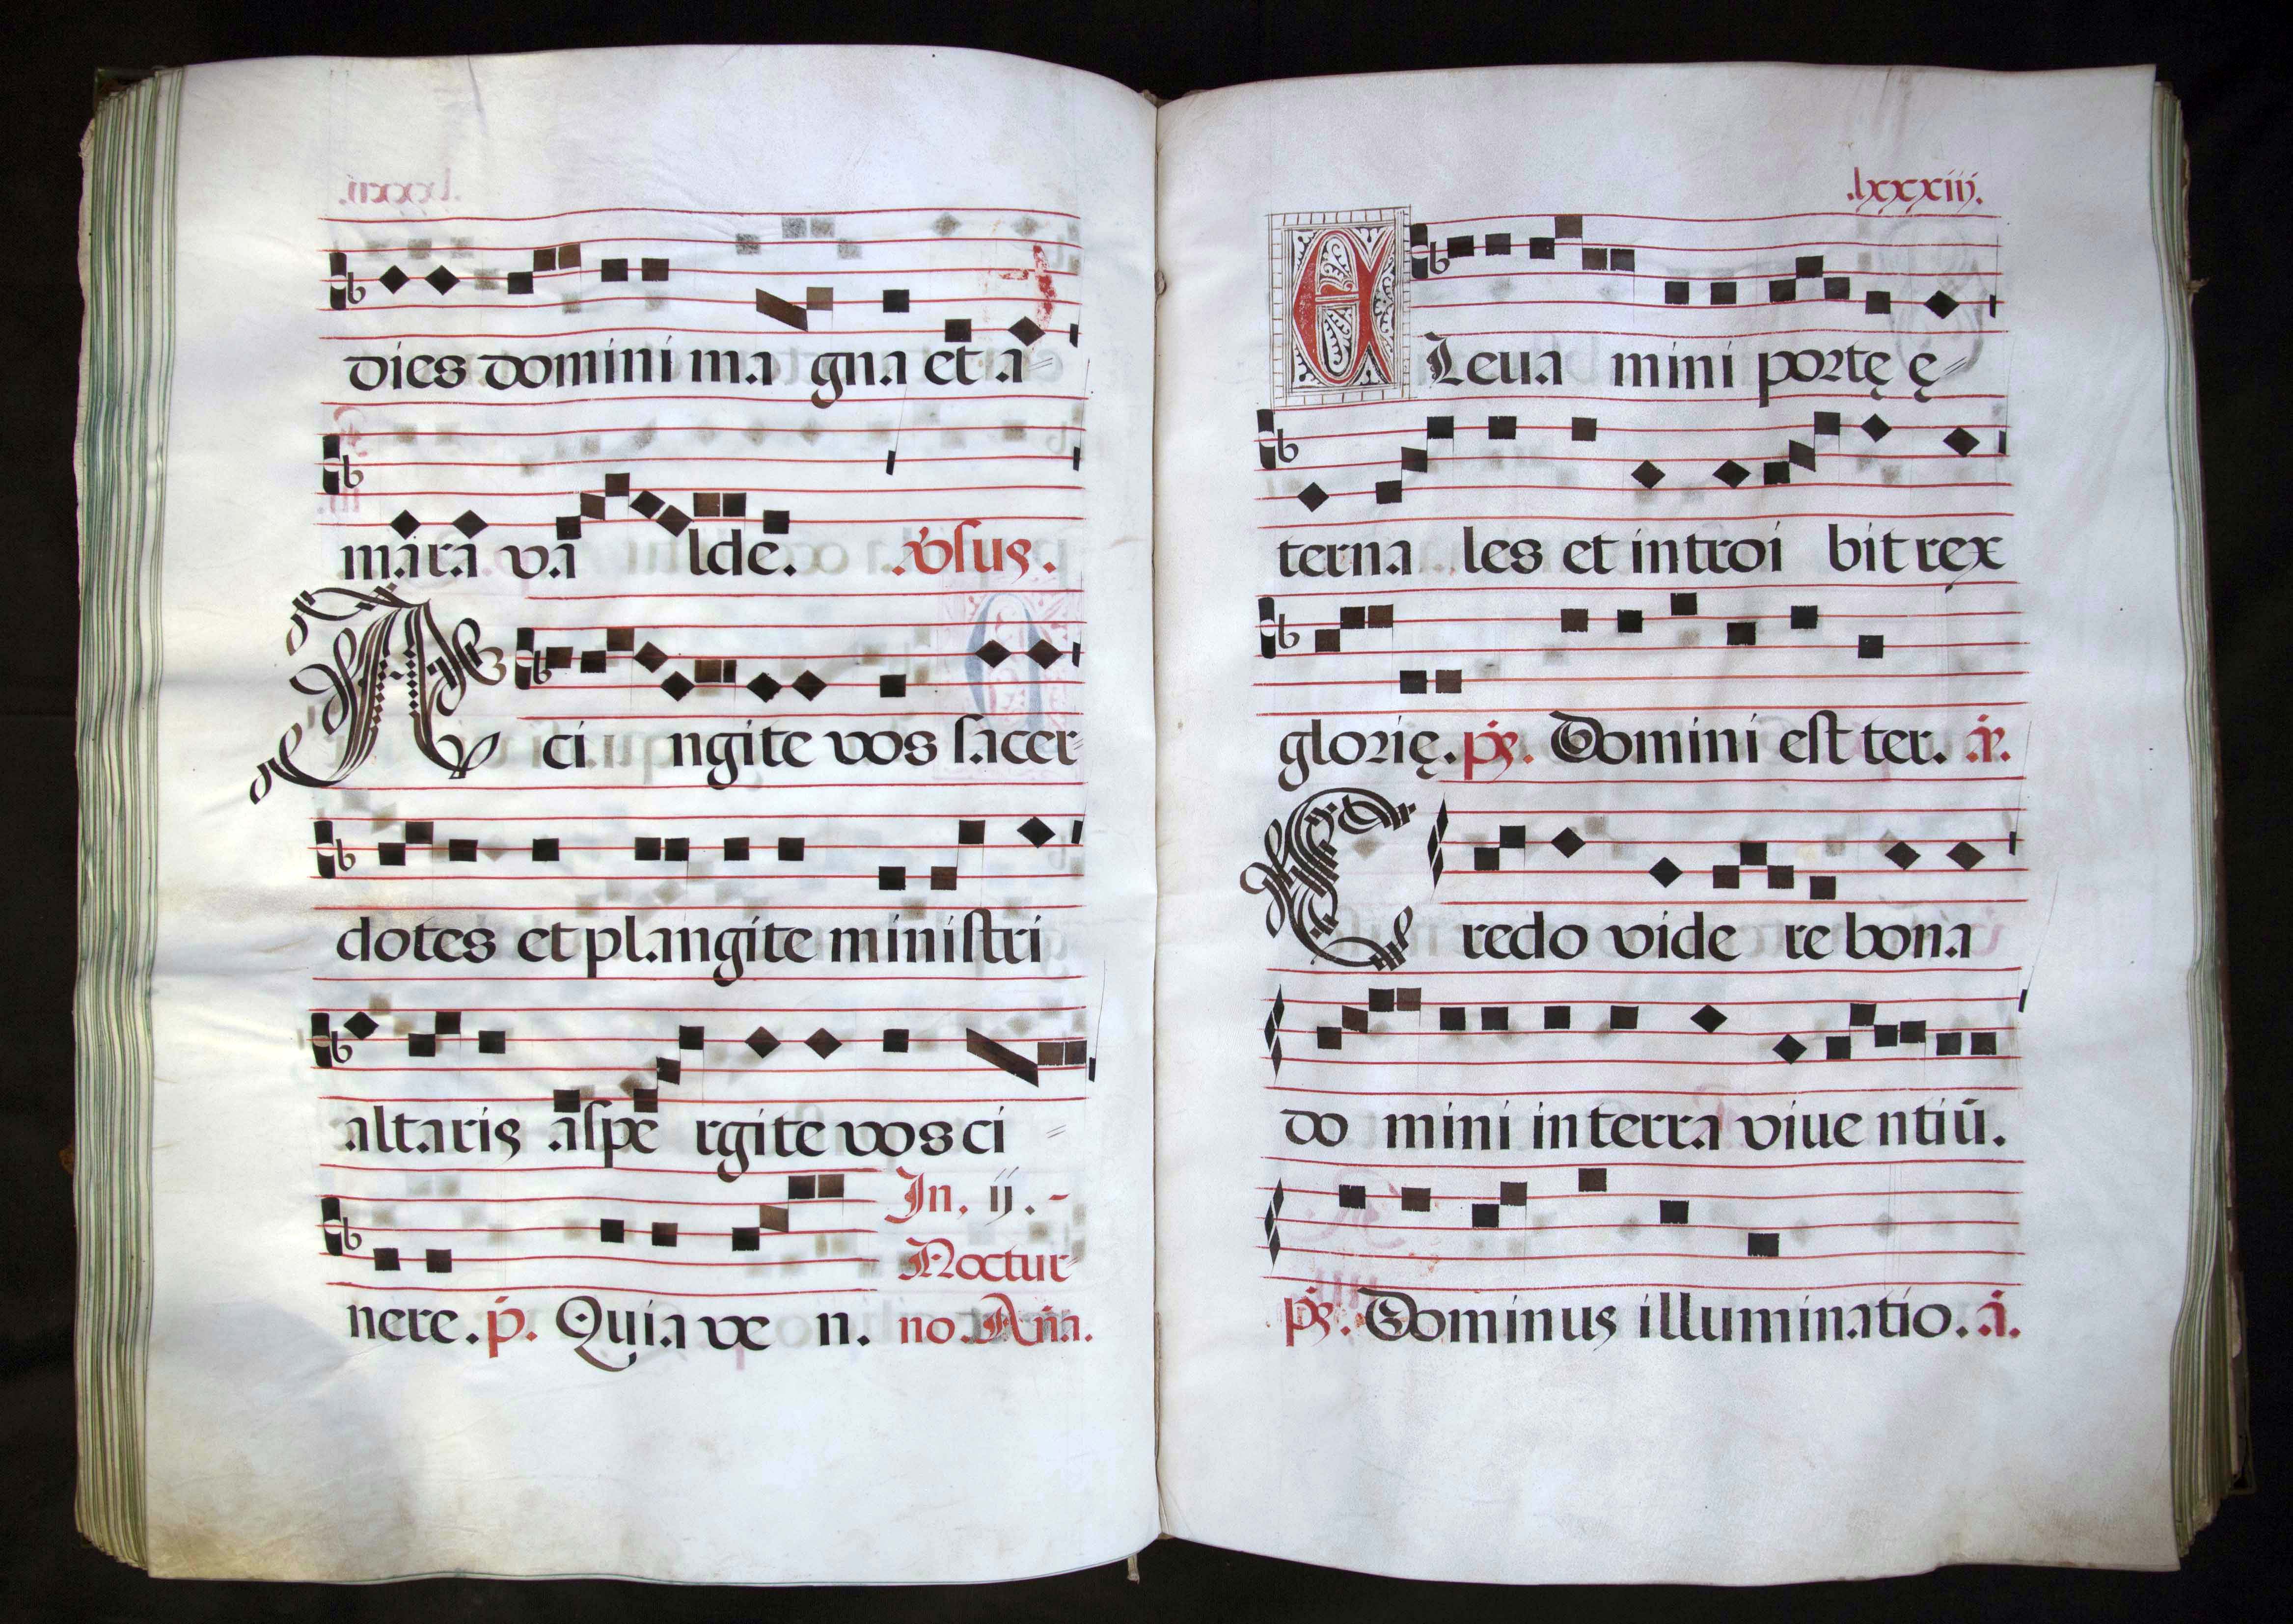 dies domini ma gna et a=
mara va lde. v̓sus.
A ci ngite vos sacer=
dotes et plangite ministri
altaris aspe rgite vos ci =
In. ij. -
Noctur=
nere. p̄. Quia ve n. no. Aña.
.lxxxiij.
E Leua mini portę ę=
terna les et introi bit rex
glorię. p̄s. Domini est ter. ā.
C redo vide re bona
do mini in terra viue ntiū.
p̄s. Dominus illuminatio. ā.